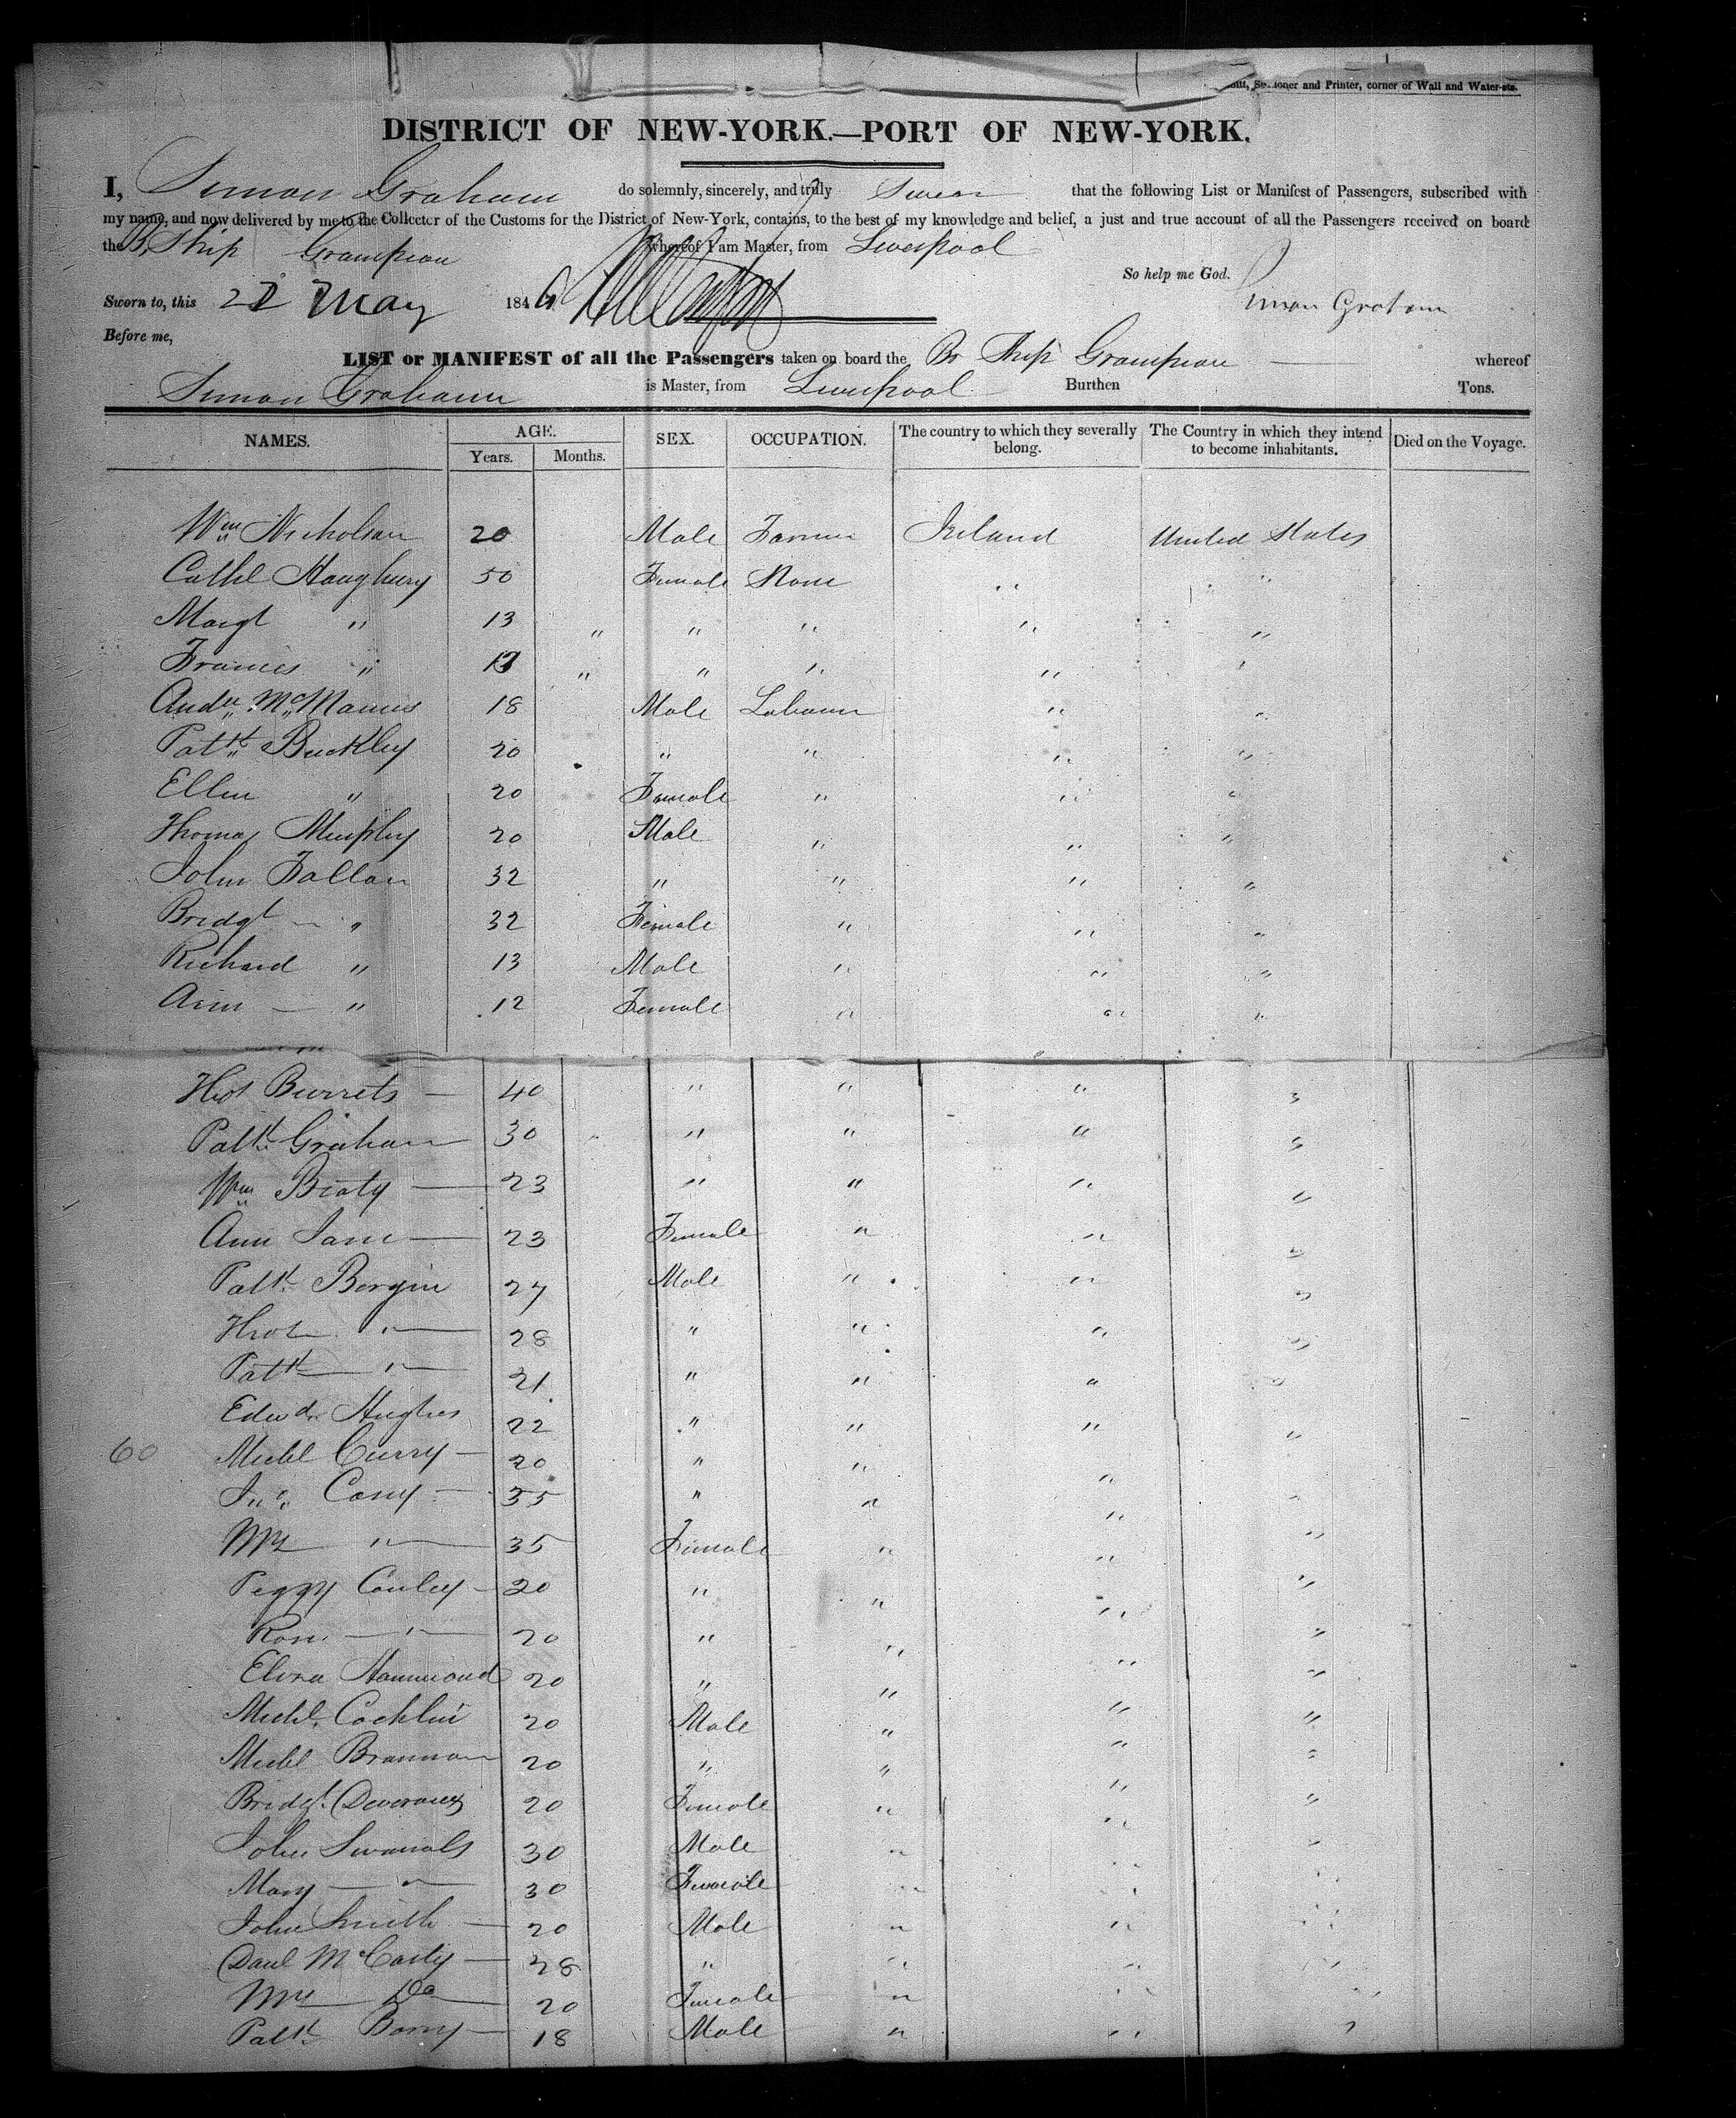 Stationer and Printer, corner of Wall and Water-sts.
DISTRICT OF NEW-YORK.—PORT OF NEW-YORK.
I, Simon Graham do solemnly, sincerely, and truly Swear that the following List or Manifest of Passengers, subscribed with
my name, and now delivered by me to the Collector of the Customs for the District of New-York, contains, to the best of my knowledge and belief, a just and true account of all the Passengers received on board
the Br Ship Grampian whereof I am Master, from Liverpool
So help me God.
Sworn to, this 22 May 1846 Simon Graham
Before me,
LIST or MANIFEST of all the Passengers taken on board the Br Ship Grampian whereof
Simon Graham is Master, from Liverpool Burthen Tons.
NAMES. AGE. Years. Months. SEX. OCCUPATION. The country to which they severally belong. The Country in which they intend to become inhabitants. Died on the Voyage.
Wm Nicholson 20 Male Farmer Ireland United States
Cathe Haughery 50 Female None " "
Margt " 13 " " " " "
Frances " 13 " " " " "
Andw McManus 18 Male Labourer " "
Patk Buckley 20 " " " "
Ellen " 20 Female " " "
Thomas Murphy 20 Male " " "
John Fallon 32 " " " "
Bridgt — " 32 Female " " "
Richard " 13 Male " " "
Ann — " 12 Female " " "
Burrets — 40 " " " "
Patk Graham 30 " " " "
Wm Beaty — 23 " " " "
Ann Jane — 23 Female " " "
Patk Bergin 27 Male " " "
" — 28 " " " "
Patk — " — 21 " " " "
Edwd Hughes 22 " " " "
60 Michl Curry — 20 " " " "
Jno Casey — 35 " " " "
" — 35 Female " " "
Peggy Conley — 20 " " " "
Rose — " — 20 " " " "
Eliza Hammond 20 " " " "
Michl Cochlin 20 Male " " "
Michl Brannan 20 " " " "
Bridgt Deveraux 20 Female " " "
John 30 Male " " "
Mary — " — 30 Female " " "
John Smith — 20 Male " " "
Danl McCarty — 28 " " " "
Do — 20 Female " " "
Patk Barry — 18 Male " " "